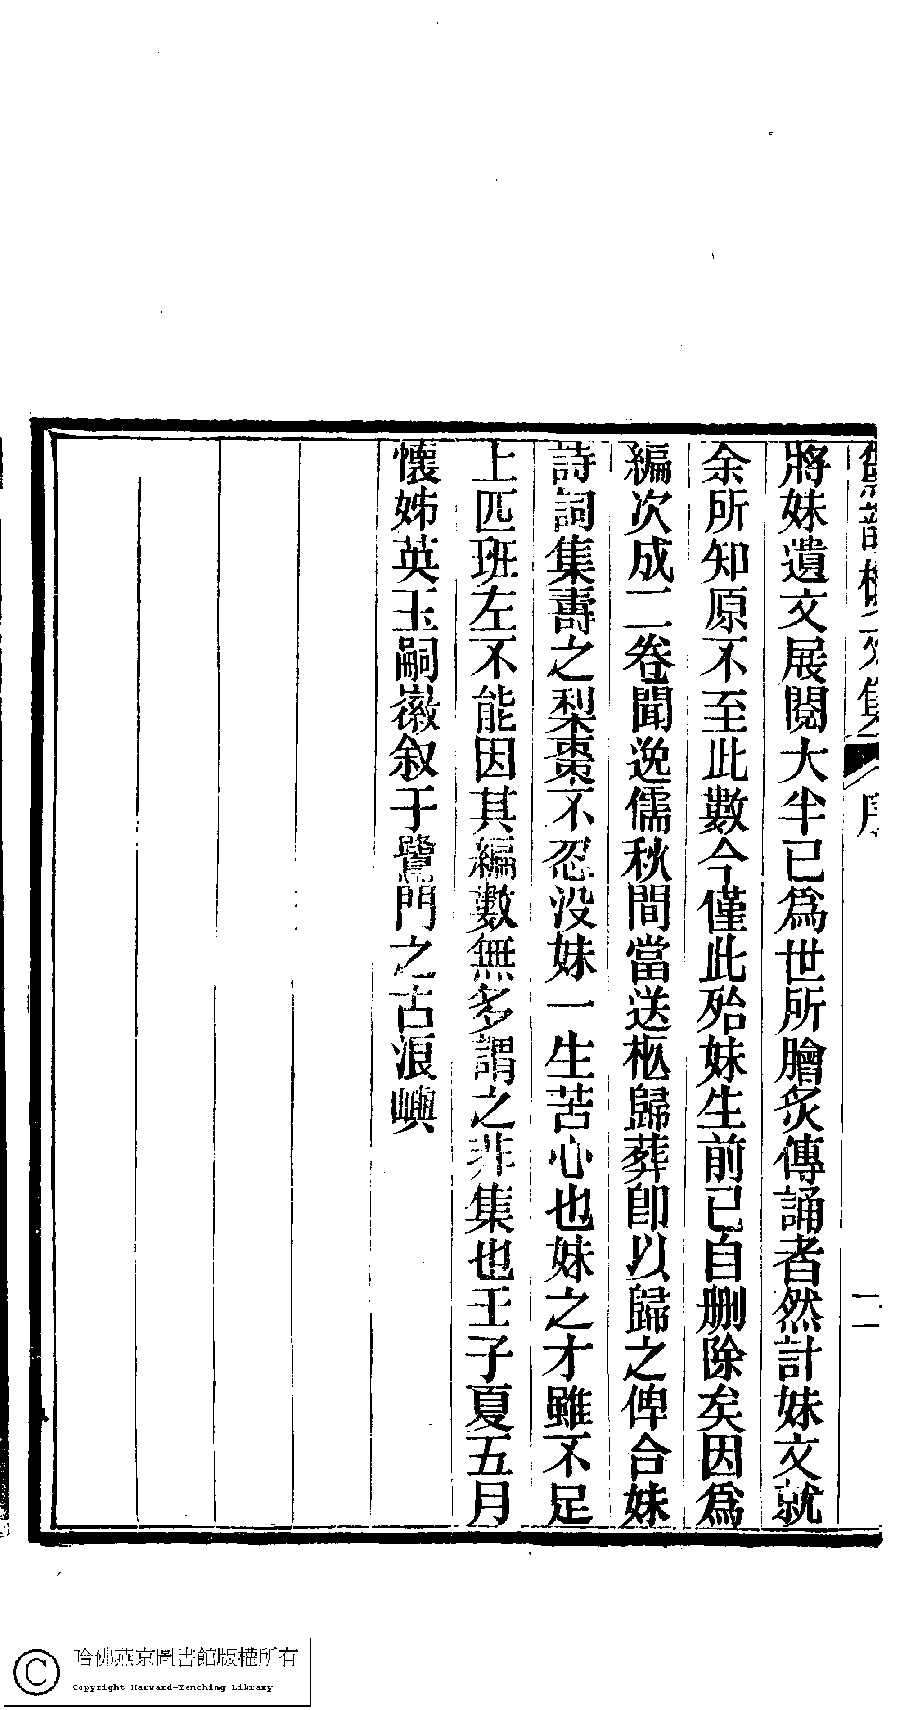 序
二
將妹遺文展閱大半已爲世所膾炙傳誦者然計妹文就
余所知原不至此數今僅此殆妹生前已自刪除矣因爲
編次成二卷聞逸儒秋間當送柩歸葬卽以歸之俾合妹
詩詞集壽之梨棗不忍没妹一生苦心也妹之才雖不足
上匹班左不能因其編數無多謂之非集也壬子夏五月
懷姊英玉嗣徽叙于鷺門之古浪嶼
哈佛燕京圖書館版權所有
Copyright Harvard-Yenching Library